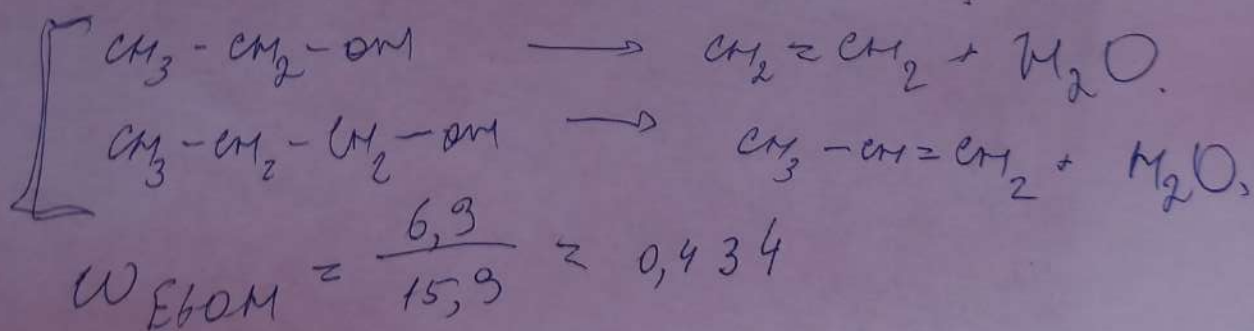 CH₃ - CH₂ - OH → CH₂ = CH₂ + H₂O.
CH₃ - CH₂ - CH₂ - OH → CH₃ - CH = CH₂ + H₂O,
ω EtOH = 6,9 / 15,9 = 0,434